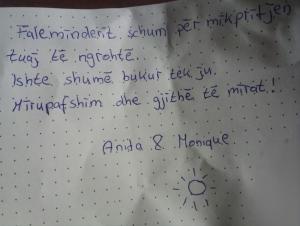 Faleminderit schum për mikpritjen
tuaj të ngrohtë.
Ishte shumë bukur tek ju.
Mirupafshim dhe gjithë të mirat!
Anida & Monique